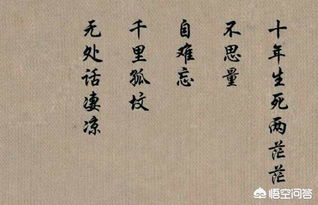 十年生死两茫茫
不思量
自难忘
千里孤坟
无处话凄凉
悟空问答